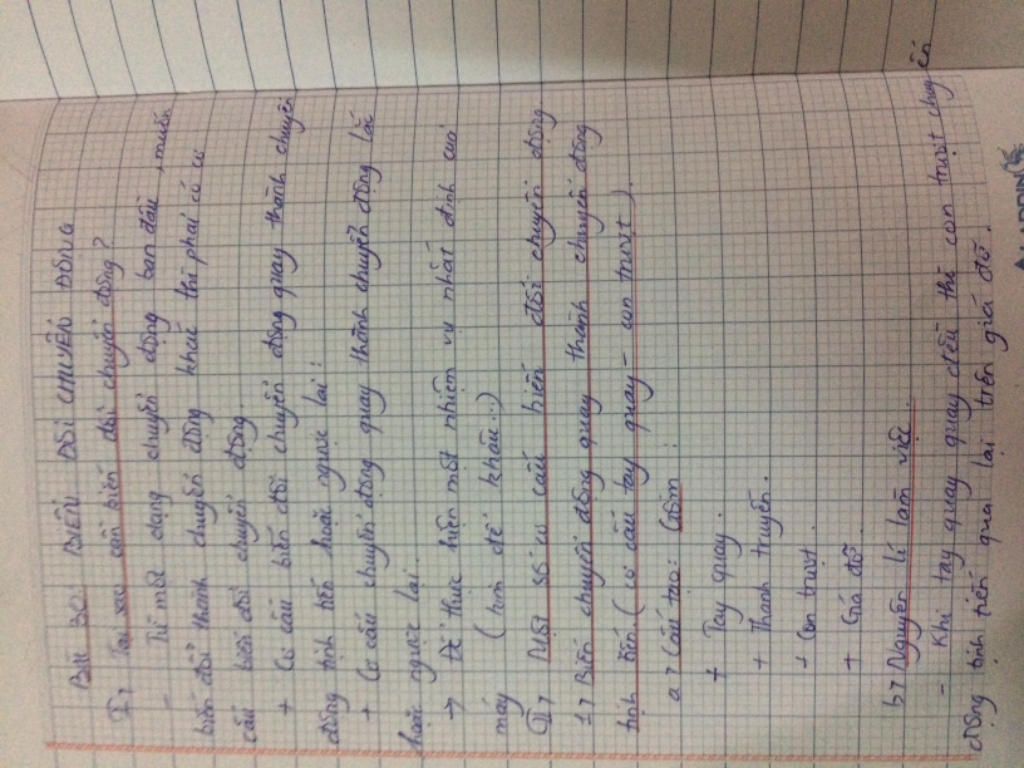 Bài 30: BIẾN ĐỔI CHUYỂN ĐỘNG
I, Tại sao cần biến đổi chuyển động?
- Từ một dạng chuyển động ban đầu, muốn
biến đổi thành chuyển động khác thì phải có cơ
cấu biến đổi chuyển động.
+ Cơ cấu biến đổi chuyển động quay thành chuyển
động tịnh tiến hoặc ngược lại!
+ Cơ cấu chuyển động quay thành chuyển động lắc
hoặc ngược lại.
→ Để thực hiện một nhiệm vụ nhất định của
máy (hình đế khâu...)
II, Một số cơ cấu biến đổi chuyển động
1, Biến chuyển động quay thành chuyển động
tịnh tiến. (cơ cấu tay quay - con trượt).
a, Cấu tạo: Gồm:
+ Tay quay.
+ Thanh truyền.
+ Con trượt.
+ Giá đỡ.
b, Nguyên lí làm việc.
- Khi tay quay quay đều thì con trượt chuyển
động tịnh tiến qua lại trên giá đỡ.